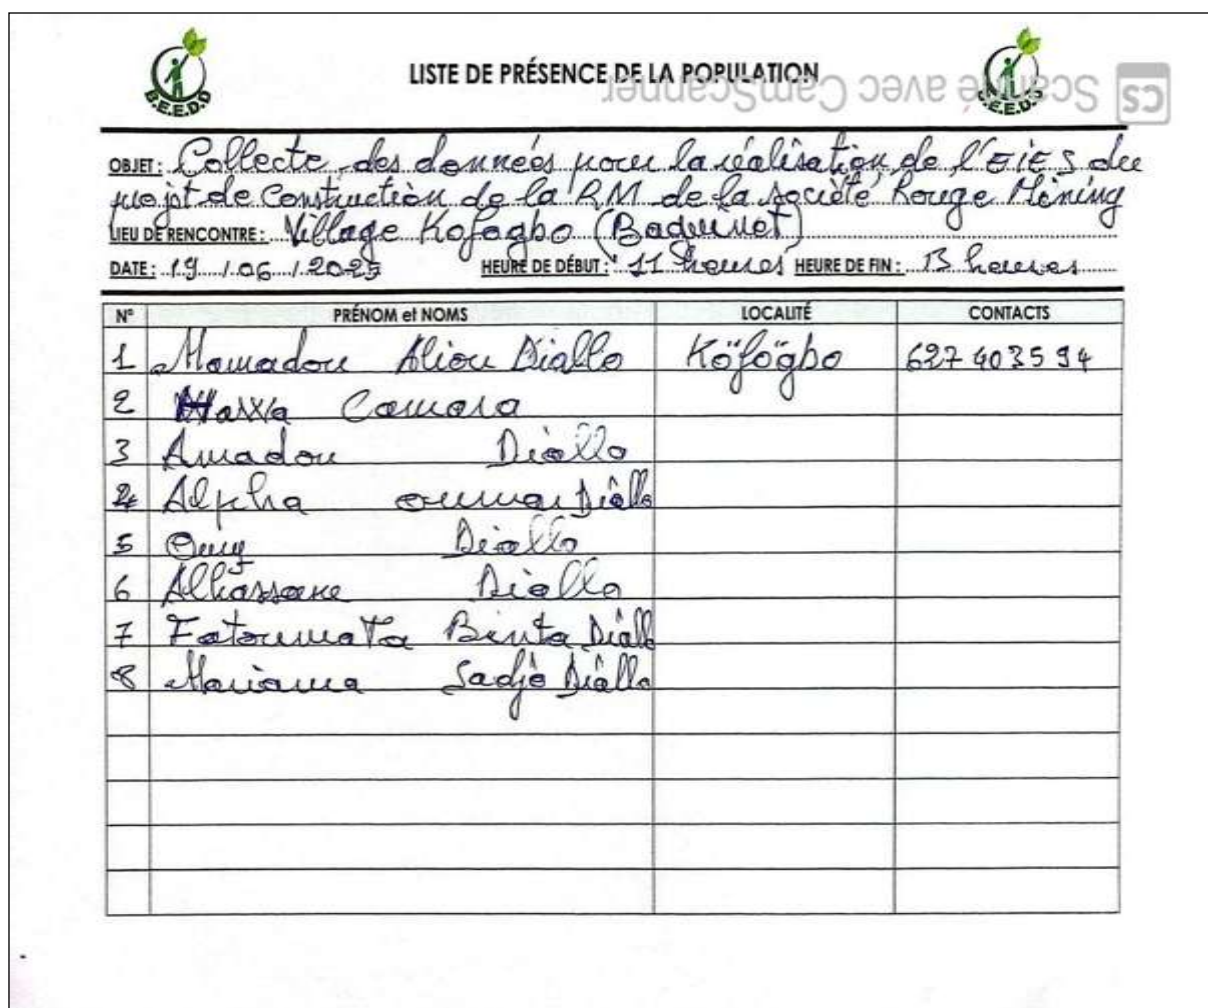 B.E.E.D.D
LISTE DE PRÉSENCE DE LA POPULATION
B.E.E.D.D
CS Scanné avec CamScanner
OBJET : Collecte des données pour la réalisation de l'EIES du
projt de Construction de la RM de la société Rouge Mining
LIEU DE RENCONTRE : Village Kofagbo (Baguinet)
DATE : 19 / 06 / 2025 HEURE DE DÉBUT : 11 heures HEURE DE FIN : 13 heures
N° PRÉNOM et NOMS LOCALITÉ CONTACTS
1 Mamadou Aliou Diallo Köfögbo 627 403594
2 Camara
3 Amadou Diallo
4 Alpha oumar Diallo
5 Oury Diallo
6 Alhassane Diallo
7 Fatoumata Binta Diallo
8 Mariama Sadjo Diallo